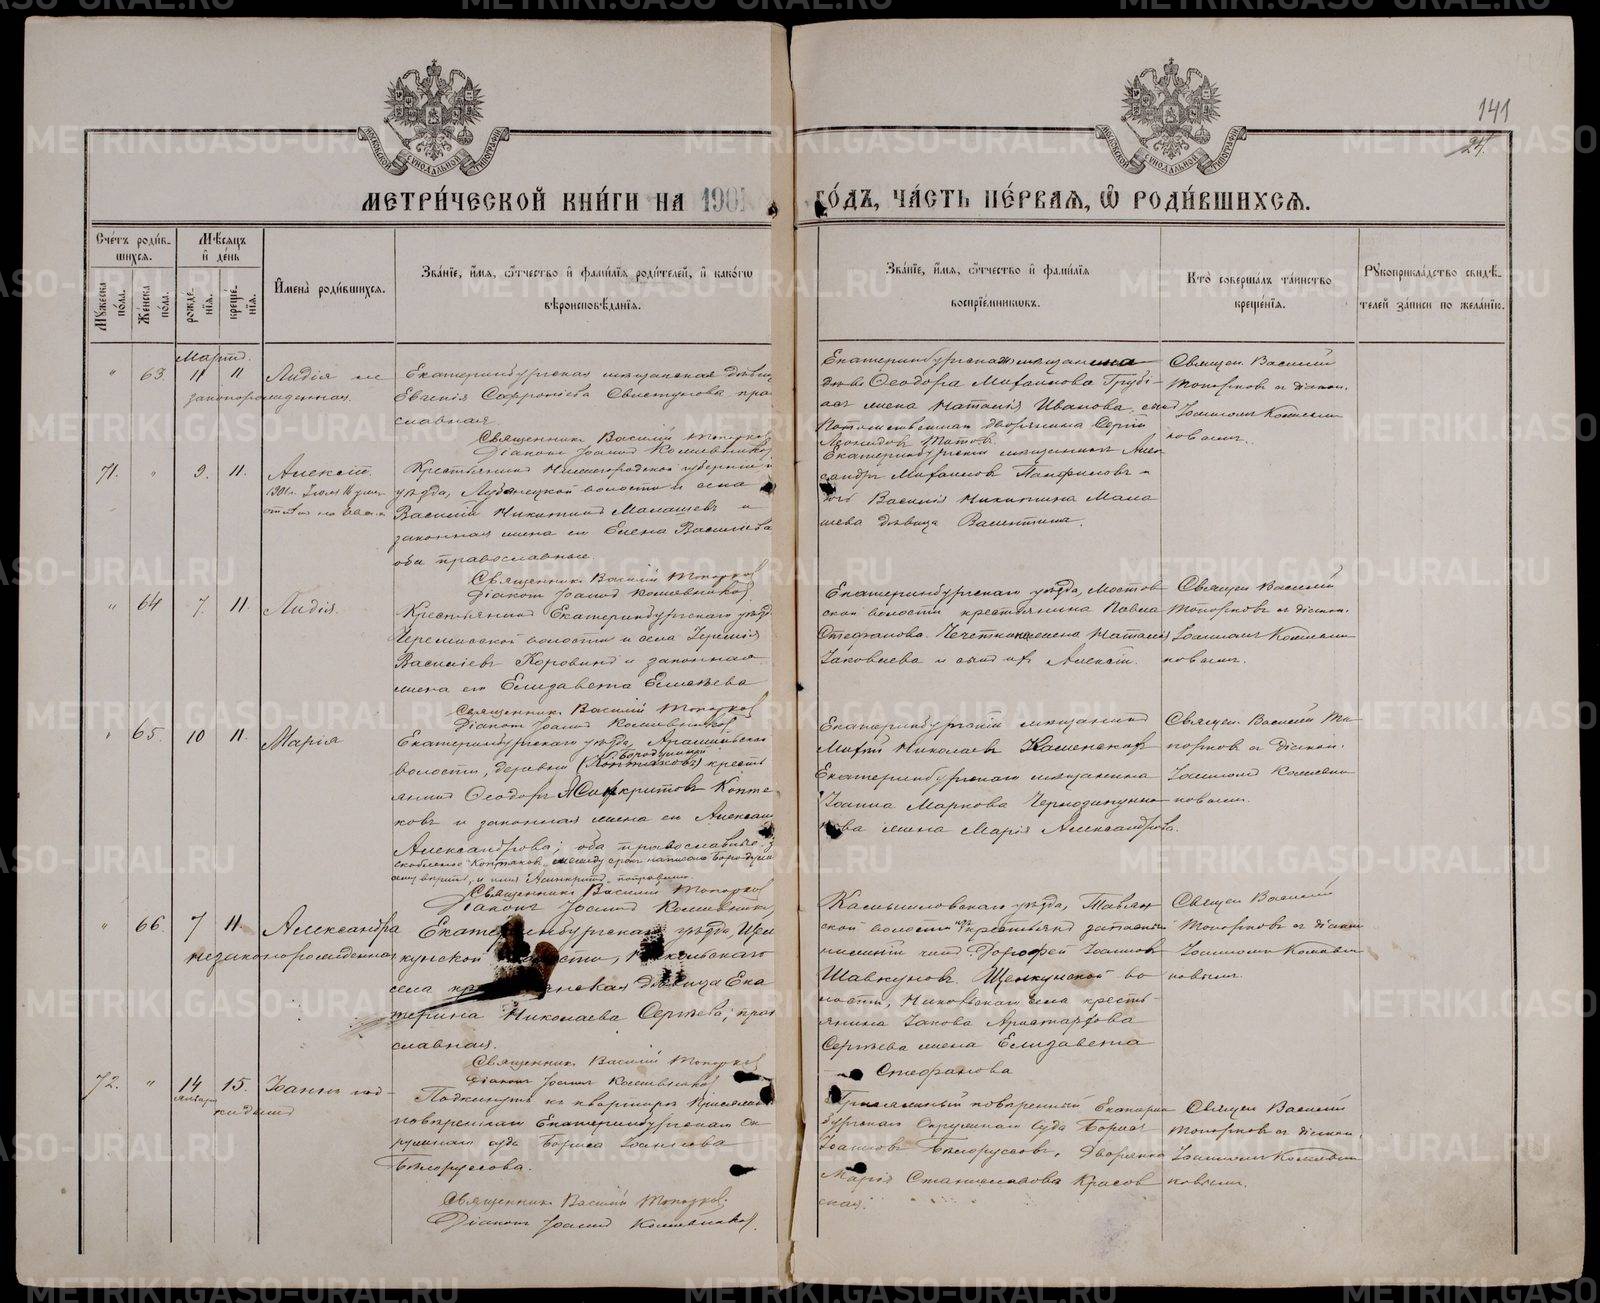 141
24.
МЕТРИ́ЧЕСКОЙ КНИ́ГИ НА 190
ГО́ДЪ, ЧА́СТЬ ПЕ́РВАѦ, Ѽ РОДИ́ВШИХСѦ.
Сче́тъ роди́в-
шихсѧ.
Мѣ́сѧцъ
и҆ де́нь
Мꙋ́жеска по́ла.
Же́нска по́ла.
рожде́-
нїѧ.
креще́-
нїѧ.
И҆мена̀ роди́вшихсѧ.
Зва́нїе, и҆́мѧ, ѻ҆́тчество и҆ фамі́лїѧ роди́телей, и҆ како́гѡ
вѣроисповѣ́данїѧ.
Зва́нїе, и҆́мѧ, ѻ҆́тчество и҆ фамі́лїѧ
воспрїе́мникѡвъ.
Кто̀ соверша́лъ та́инство
креще́нїѧ.
Рꙋкоприкла́дство свидѣ́-
телей за́писи по жела́нїю.
Мартъ.
" 63. 11 11 Лидія не
законорожденная.
Екатеринбургская мѣщанская дѣвица
Евгенія Софроніева Свистунова, пра
славная.
Священникъ Василій Топорков
Діаконъ Іоаннъ Кожевников
Ѳеодора Михаилова
жена Наталія Иванова
Потомственнаго дворянина Сергій
Священ. Василій
Топорковъ съ діакон.
Іоанномъ Кожевни
ковымъ.
71. " 9. 11. Алексій
Крестьянинъ Нижегородской губерніи и
уѣзда, волости и села
Василій Никитинъ Малашевъ и
законная жена его Елена Васильева
оба православные.
Священникъ Василій Топорков
Діаконъ Іоаннъ Кожевников
Екатеринбургскій мѣщанинъ Алек
сандръ Михаиловъ Панфиловъ и
Василія Никитина Мала
шева дѣвица Валентина.
" 64 7. 11. Лидія.
Крестьянинъ Екатеринбургскаго уѣзда
Черемисской волости и села Іеремія
Васильевъ Коровинъ и законная
жена его Елизавета Елисѣева
Священникъ Василій Топорков
Діаконъ Іоаннъ Кожевников
Екатеринбургскаго уѣзда, Мостов
ской волости крестьянина Павла
Стефанова жена Наталія
Іаковлева и сынъ ихъ Алексій.
Священ. Василій
Топорковъ съ діакон.
Іоанномъ Кожевни
ковымъ.
65. 10 11. Марія
Екатеринбургскаго уѣзда, Арамильской
волости, деревни (Коптяковъ) кресть
янинъ Ѳеодоръ Асинкритовъ Копте
ковъ и законная жена его Александра
Александрова; оба православные.
Священникъ Василій Топорков
Діаконъ Іоаннъ Кожевников
Екатеринбургскій мѣщанинъ
Николаевъ Каменсковъ
Екатеринбургскаго мѣщанина
Іоанна Маркова
жена Марія Александрова.
Священ. Василій То
порковъ съ діакон.
Іоанномъ Кожевни
ковымъ.
" 66. 7 11. Александра
незаконорожденная
Екатеринбургскаго уѣзда, Щел
кунской волости, Никольскаго
села крестьянская дѣвица Ека
терина Николаева Сергѣева; прав
славная.
Священникъ Василій Топорков
Діаконъ Іоаннъ Кожевников
Камышловскаго уѣзда,
ской волости крестьянинъ запасный
чинъ Дорофей Іоанновъ
Шавкуновъ. Щелкунской во
лости, Никольскаго села кресть
янина Іакова Аристархова
Сергѣева жена Елизавета
Стефанова
Священ Василій
Топорковъ съ діакон
Іоанномъ Кожевни
ковымъ.
72. " 14 15. Іоаннъ под-
января
кидышъ
Подкинутъ къ квартирѣ присяжнаго
повѣреннаго Екатеринбургскаго Ок
ружнаго суда Бориса Іоаннова
Бѣлоруссова.
Священникъ Василій Топорков.
Діаконъ Іоаннъ Кожевников.
Присяжный повѣренный Екатерин
бургскаго Окружнаго Суда Борисъ
Іоанновъ Бѣлоруссовъ. Дворянка
Марія Станиславова Красов
ская.
Священ Василій
Топорковъ съ діакон.
Іоанномъ Кожевни
ковымъ.
METRIKI.GASO-URAL.RU